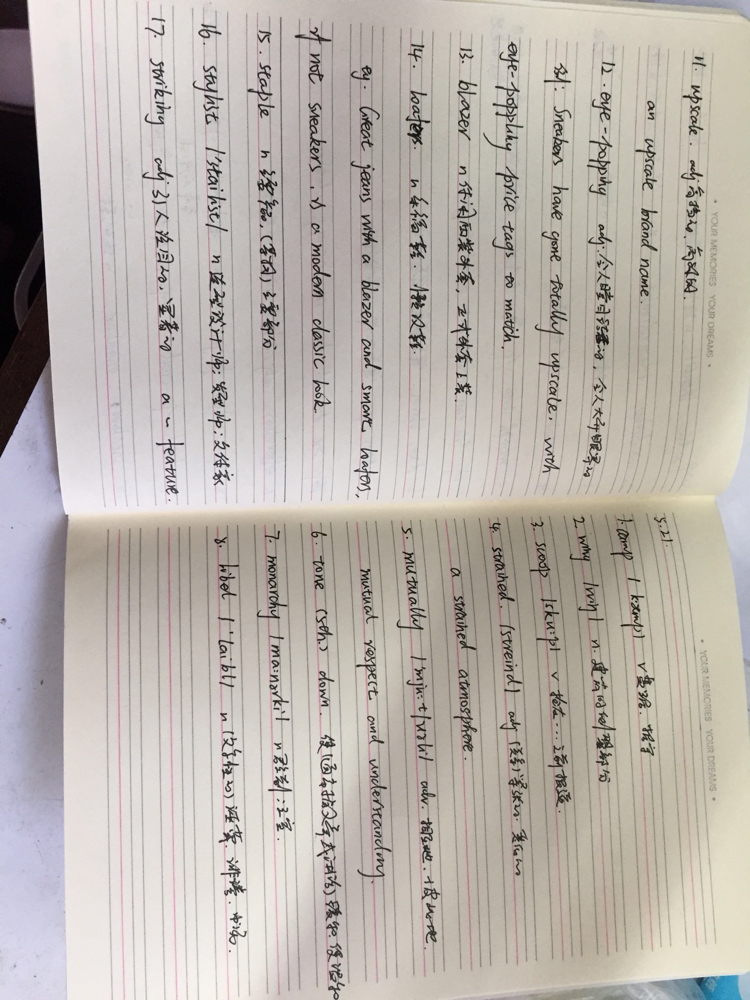 • YOUR MEMORIES YOUR DREAMS •
11. upscale. adj 高档的, 高端的.
an upscale brand name.
12. eye-popping adj. 令人瞠目结舌的, 令人大开眼界的
例: Sneakers have gone totally upscale, with
eye-popping price tags to match.
13. blazer n 休闲西装外套, 正式外套上装.
14. loafers. n 平底便鞋.
eg. Great jeans with a blazer and smart loafers,
if not sneakers, is a modern classic look
15. staple n 主要产品, (某国) 主要部分
16. stylist /'stailist/ n 造型设计师; 发型师; 文体家
17. striking adj 引人注目的, 显著的 a ~ feature.
• YOUR MEMORIES YOUR DREAMS •
5.21.
1. camp /kæmp/ v
2. wing /wiŋ/ n. 建筑的侧翼部分
3. scoop /sku:p/ v 抢在...之前报道.
4. strained. /streind/ adj
a strained atmosphere.
5. mutually /'mju:tʃuəli/ adv. 相互地, 彼此地.
mutual respect and understanding.
6. tone (sth.) down. 使
7. monarchy /'mɔnərki/ n 君主制; 王室.
8. libel /'laibl/ n (文字性的) 诽谤.